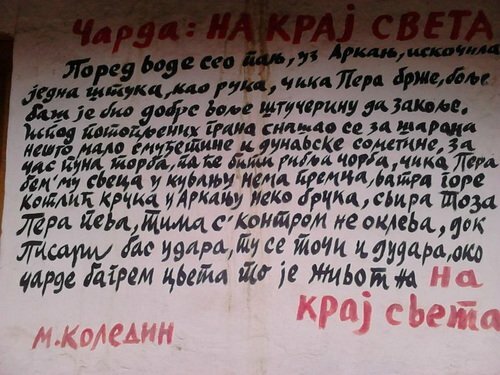 Чарда: НА КРАЈ СВЕТА
Поред воде сео пањ, уз Аркањ, искочила
једна штука, као рука, чика Пера брже, боље
баш је био добре воље штучерину да закоље.
испод потопљених грана снашао се за шарана
нешто мало смуђетине и дунавске сометине, за
час пуна торба, па ће бити рибља чорба, чика Пера
бем'му свеца у кувању нема премца, ватра горе
котлић крчка у Аркању неко бручка, свира Тоза
Пера пева, Тима с' контром не оклева, док
Писари бас удара, ту се точи и дудара, око
чарде багрем цвета то је живот на НА
КРАЈ СВЕТА
М. КОЛЕДИН